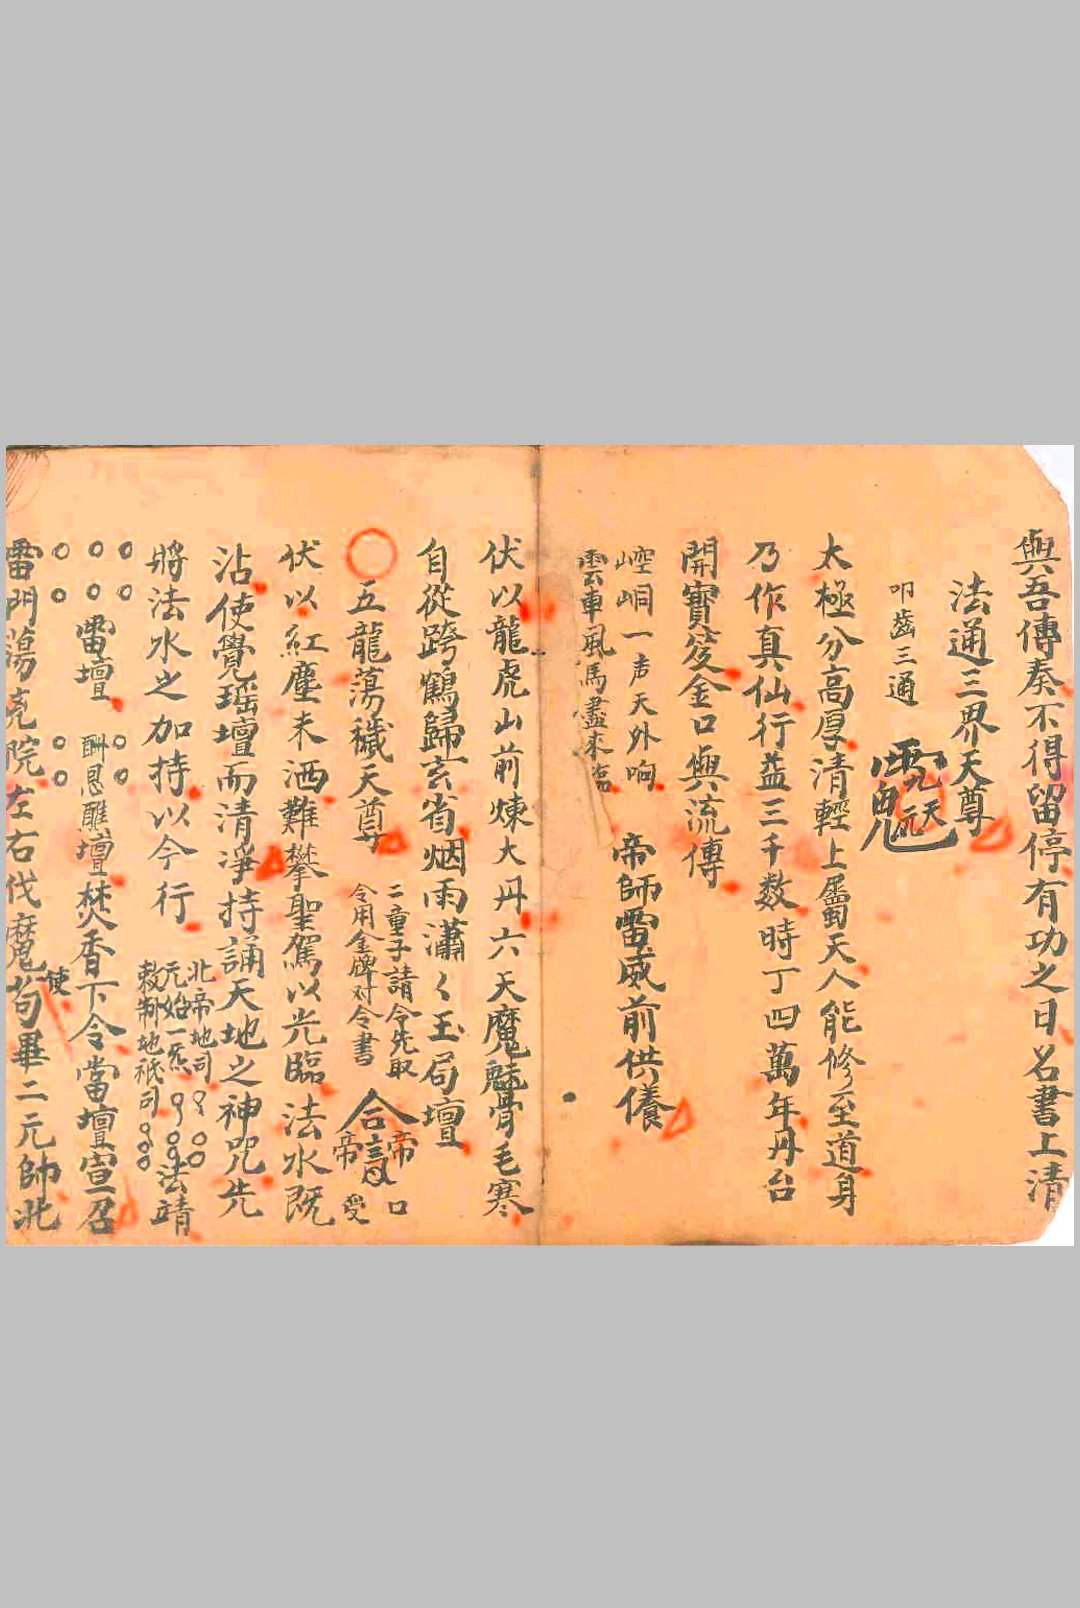 與吾傳奏不得留停有功之日名書上清
法通三界天尊
叩齒三通
太極分高厚清輕上屬天人能修至道身
乃作真仙行益三千数時丁四萬年丹台
開寶笈金口與流傳
崆峒一声天外响
雲車風馬盡來臨
帝師雷威前供養
伏以龍虎山前煉大丹六天魔魅骨毛寒
自從跨鶴歸玄省烟雨瀟〻玉局壇
〇五龍蕩穢天尊
二童子請令先取
令用金牌对令書
伏以紅塵未洒難攀聖駕以光臨法水既
沾使覺瑶壇而清淨持誦天地之神咒先
將法水之加持以今行
北帝地司
元始一炁
敕制地祇司
法靖
〇〇雷壇
酬恩醮壇焚香下令當壇宣召
雷門蕩 院左右伐魔使苟畢二元帥北